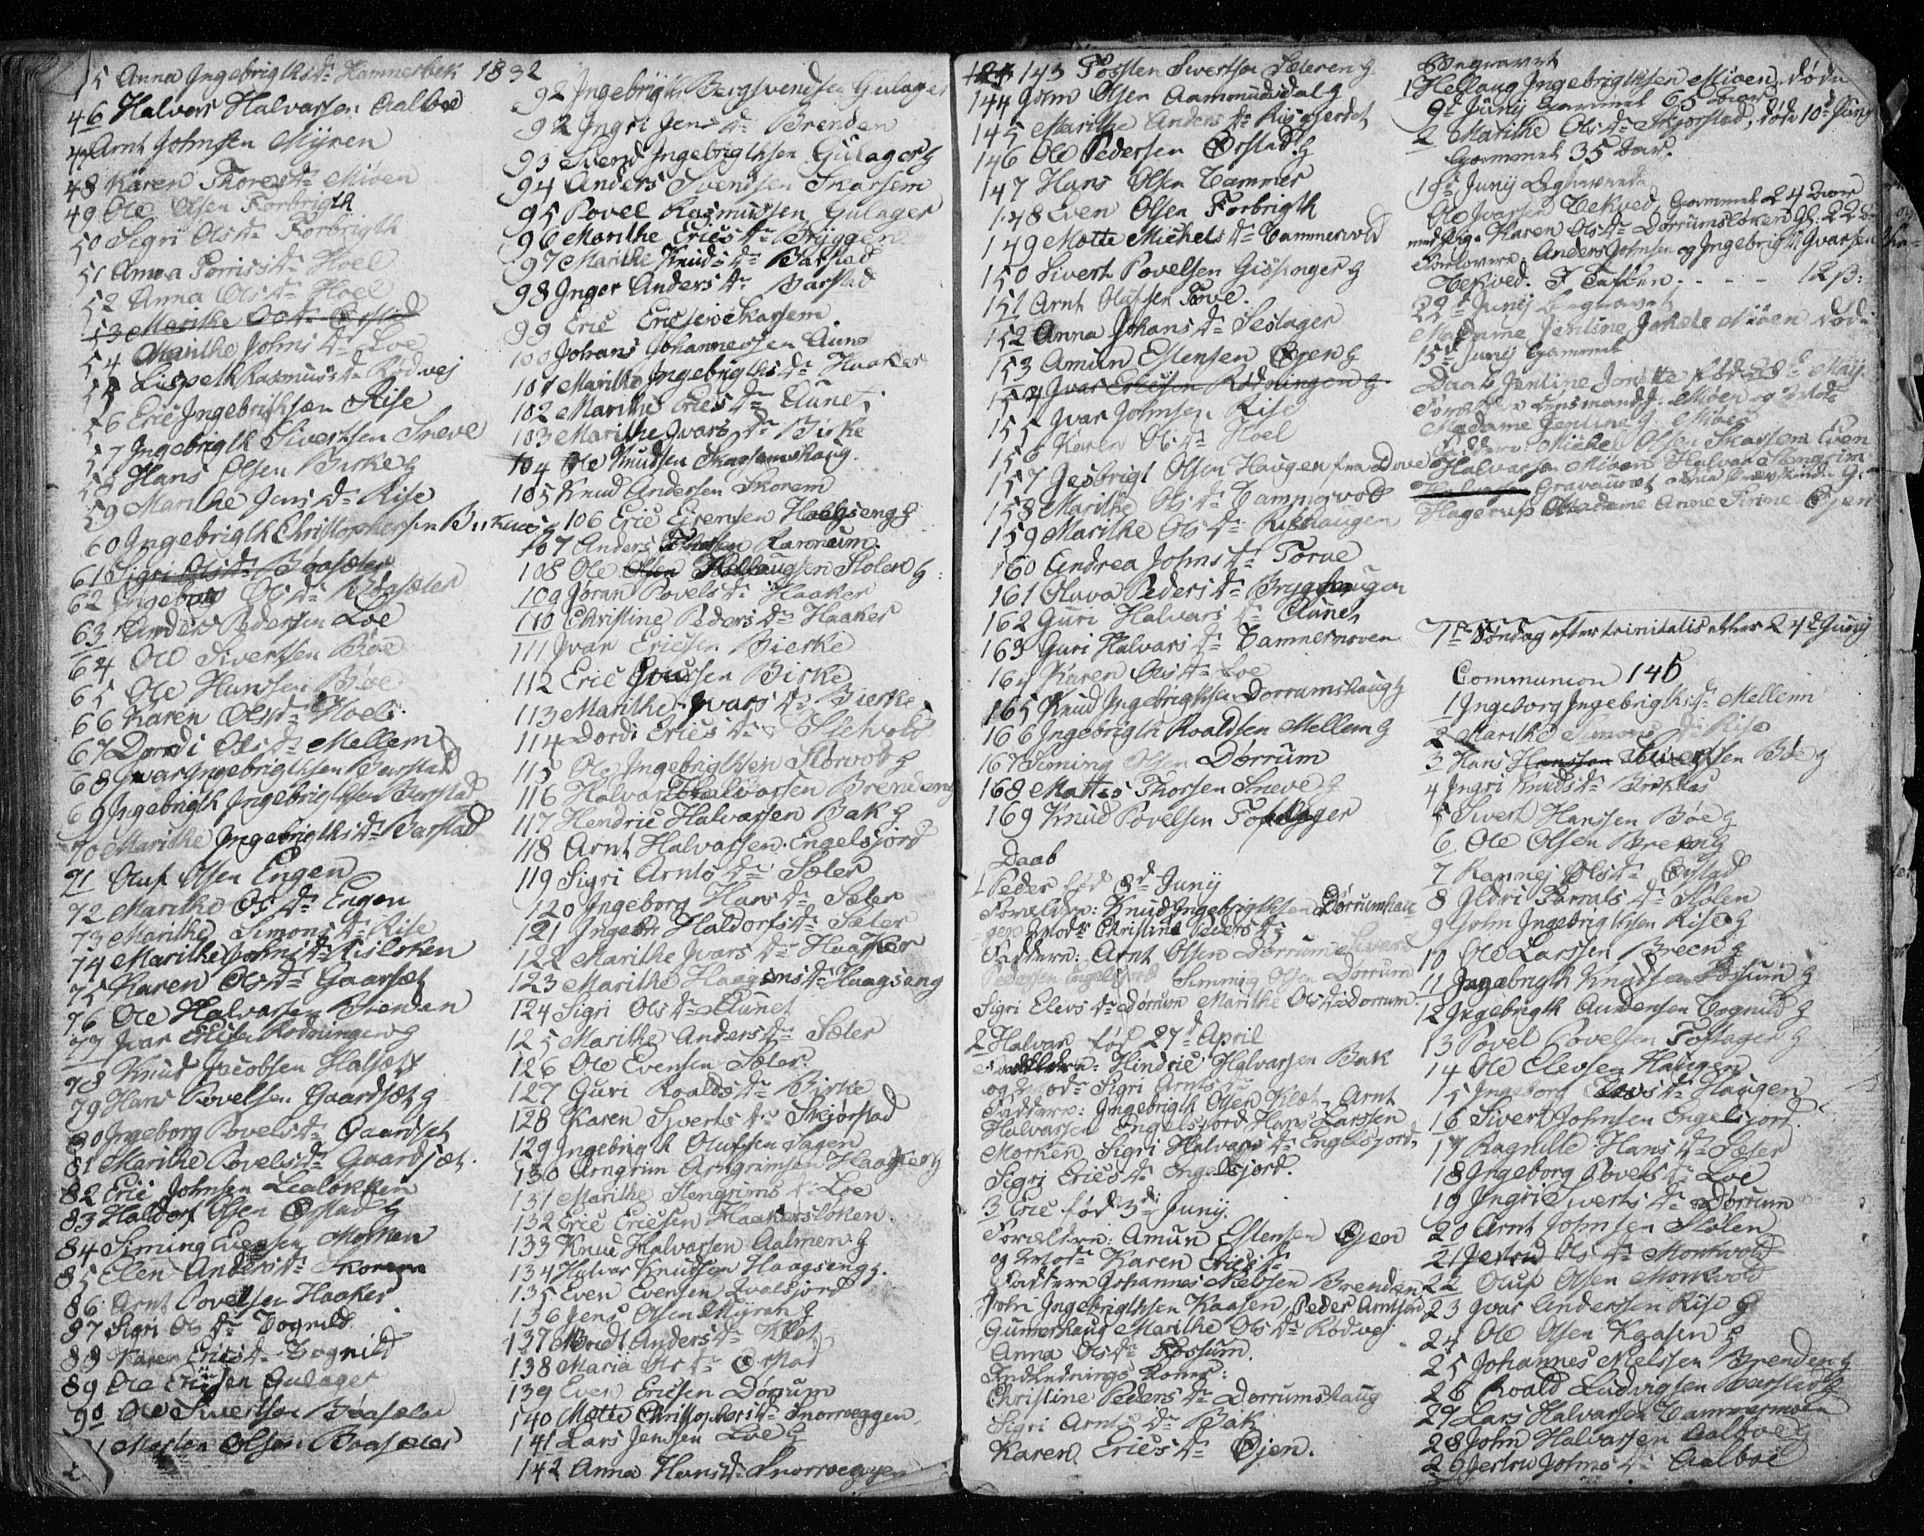 45 Anna Ingebrigths Dr Hammerbek
46 Halvor Halvarsen Aalboe
47 Arnt Johnsen Myren
48 Karen Thores Dr Mioen
49 Ole Olsen Forbrigth
50 Sigri Ols Dr Forbrigth
51 Anna Dr Hoel
52 Anna Ols Dr Hoel
53 Marithe Ørstad
54 Marithe Johns Dr Loe
55 Lispeth Rasmus Dr Rødvej
56 Eric Ingebrigthsen Rise
57 Ingebrigth Sivertsen Sneve
58 Hans Olsen Birke g
59 Marithe Jens Dr Rise
60 Ingebrigth Christophersen
61 Sigri Ols Dr Bøasæter
62 Ingeborg Ols Dr Bøasæter
63 Anders Pedersen Loe
64 Ole Sivertsen Bøe
65 Ole Hanssen Bøe
66 Karen Ols Dr Hoel
67 Dordi Ols Dr Mellem
68 Ivar Ingebrigthsen Barstad
69 Ingebrigth Ingebrigthsen Barstad
70 Marithe Ingebrigths Dr Barstad
71 Oluf Olsen Engen
72 Marithe Ols Dr Engen
73 Marithe Simons Dr Rise
74 Marithe Johns Dr Risløken
75 Karen Ols Dr Gaarset
76 Ole Halvarsen Brendan
77 Ivar Ericsen Rødningen g
78 Knud Jacobsen
79 Hans Povelsen Gaardset g
80 Ingeborg Povels Dr Gaardset
81 Marithe Povels Dr Gaardset
82 Eric Johnsen Lealøkken
83 Haldor Olsen Ørstad g
84 Siming Evensen Morken
85 Elen Anders Dr Skorem
86 Arnt Povelsen Haaker
87 Sigri Ols Dr Vognild
88 Karen Erics Dr Vognild
89 Ole Ericsen Gulager
90 Ole Sivertsen Bøasæter
91 Morten Olsen Bøasæter
1832
92 Ingebrigth Bergsvendsen Gulager
92 Ingri Jens Dr Brenden
93 Svend Ingebrigthsen Gulager g
94 Anders Svendsen Skarsem
95 Povel Rasmussen Gulager
96 Marithe Erics Dr Bryggen
97 Marithe Knuds Dr Barstad
98 Inger Anders Dr Barstad
99 Eric Ericsen Skarsem
100 Johans Johannessen Aune
101 Marithe Ingebrigths Dr Haaker
102 Marithe Erics Dr Aunet
103 Marithe Ivars Dr Birke
104 Ole Knudsen Skarsemshaug
105 Knud Andersen Skorem
106 Eric Haagseng g
107 Anders Johnsen
108 Ole Olsen Hellaugsen Stølen g
109 Joran Povels Dr Haaker
110 Christine Peders Dr Haaker
111 Ivar Ericsen Bierke
112 Eric Ivarsen Birke
113 Marithe Ivars Dr Bierke
114 Dordi Erics Dr
115 Ole Ingebrigthsen Størvold g
116 Halvar Halvarsen Brendeng
117 Hendric Halvarsen Bak g
118 Arnt Halvarsen Engelsjord
119 Sigri Arnts Dr Sæter
120 Ingeborg Hans Dr Sæter
121 Ingebr Haldors Dr Sæter
122 Marithe Ivars Dr Haaker
123 Marithe Haagens Dr Haagseng
124 Sigri Ols Dr Aunet
125 Marithe Anders Dr Sæter
126 Ole Evensen Sæter
127 Guri Roalds Dr Birke
128 Karen Siverts Dr Skjørstad
129 Ingebrigth Olufsen Hagen
130 Arngrim Arngrimsen Haagseng
131 Marithe Stengrims Dr Loe
132 Eric Ericsen Haakersløken
133 Knud Halvarsen Aalmen g
134 Halvar Knudsen Haagseng g
135 Even Evensen Kvalsjord
136 Jens Olsen Myran g
137 Beret Anders Dr Klet
138 Maria Ols Dr Ørstad
139 Even Ericsen Dørrum
140 Mette Christophers Dr Snorroeggen
141 Lars Jenssen Loe g
142 Anna Hans Dr Snorroeggen
143 Tosten Sivertsen Sæteren g
144 John Olsen Aammudsdal g
145 Marithe Anders Dr
146 Ole Pedersen Ørstad g
147 Hans Olsen Tammer
148 Even Olsen Forbrigth
149 Mette Michels Dr Tammervold
150 Sivert Povelsen Gissinger g
151 Arnt Olufsen Tove
152 Anna Johans Dr Seslager
153 Amun Estensen Øien g
154 Ivar Ericsen Rødningen g
155 Ivar Johnsen Rise
156 Karen Ols Dr Hoel
157 Jesbrigt Olsen Haugen fra Dovre
158 Marithe Ols Dr Tammervold
159 Marithe Ols Dr Risehaugen
160 Andrea Johns Dr Torve
161 Oluva Peders Dr Brygghaugen
162 Guri Halvars Dr Aunet
163 Guri Halvars Dr Tammermoen
164 Karen Ols Dr Loe
165 Knud Ingebrigthsen Dørrumshaug g
166 Ingebrigth Roaldsen Mellem g
167 Siming Olsen Dørrum
168 Mattis Thorsen Sneve g
169 Knud Povelsen Foslager
Daab
1 Peder fød 8d Juny
Forældre: Knud Ingebrigthsen Dørrumshau
gen Mod: Christine Peders Dr
Faddere: Arnt Olsen Dørrum Sivert
Pedersen Engelsjord Simming Olsen Dørrum
Sigri Elevs Dr Dørrum Marithe Ols Dr Dørrum
2 Halvar fød 27d April
Forældre: Hindric Halvarsen Bak
og Mod: Sigri Arnts Dr
Faddere: Ingebrigth Olsen Klet, Arnt
Halvarsen Engelsjord Hans Larssen
Morken, Sigri Halvars Dr Engelsjord,
Sigri Erics Dr Engelsjord.
3 Eric fød 3d Juny.
Forældre: Amun Estensen Øien
og Mod: Karen Erics Dr
Faddere Johannes Nielssen Brenden
John Ingebrigthsen Kaasen, Peder Arntsen
Gunnershaug Marithe Ols Dr Rødvej
Anna Ols Dr Fossum.
Indlednings Koner:
Christine Peders Dr Dørrumshaug
Sigri Arnts Dr Bak
Karen Erics Dr Øien.
Begravet
1 Hellaug Ingebrigthsen Mioen, døde
9d Juny Gammel 65 Aar
2 Marithe Ols Dr Skjørstad, døde 10d Juny
Gammel 35 Aar.
18d Juny Ægteviede
Ole Ivarsen Vekved, Gammel 24 Aar
med Pige Karen Ols Dr Dørrumsløken Gl: 22
Forlovere: Anders Johnsen og Ingebrigth Ivarsen
Vekved. - - - - 12 β:
22d Juny Begravet
Madame Jenline Mioen død
15d Juny Gammel
Daab Jenline Jonette fød 28d May
Forældre Lensmand Mioen og Mod
Madame Jenline Mioen
Faddere: Michel Olsen Skarsem Even
Halvarsen Mioen Halvar Stengrim
Gravauret
Hagerup Madame Anne Sirine Øien
7de Søndag efter trinitatis ether 24d Juny
Communion 146
1 Ingeborg Ingebrigths Dr Mellem
2 Marithe Simons Dr Rise
3 Hans Hanssen Sivertsen Bøe g
4 Ingri Knuds Dr Birkaas
5 Sivert Hanssen Bøe g
6 Ole Olsen Breeng
7 Rannej Ols Dr Ørstad
8 Ildri Dr Stølen
9 John Ingebrigthsen Rise g
10 Ole Larssen Breen g
11 Ingebrigth Knudsen Fossum g
12 Ingebrigth Audensen Vognild g
13 Povel Povelsen Foslager g
14 Ole Elevsen Haugen
15 Ingeborg Elevs Dr Haugen
16 Sivert Johnsen Engelsjord
17 Ragnille Hans Dr Sæter
18 Ingeborg Povels Dr Loe
19 Ingri Siverts Dr Dørrum
20 Arnt Johnsen Stølen
21 Jertru Ols Dr Morkvold
22 Oluf Olsen Morkvold
23 Ivar Anderssen Rise g
24 Ole Olsen Kaasen g
25 Johannes Nielssen Brenden g
26 Roald Ludvigsen Barstad g
27 Lars Halvarsen Tammermoen
28 John Halvarsen Aalboe g
29 Jertru Johns Dr Aalboe